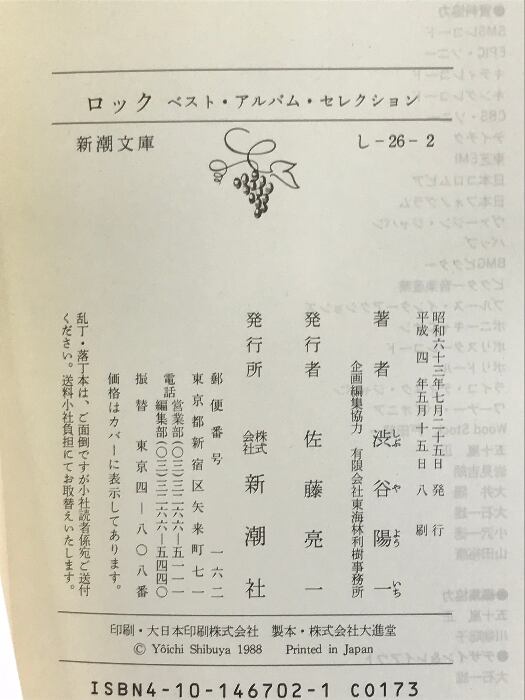 ロック ベスト・アルバム・セレクション
新潮文庫
し-26-2
昭和六十三年七月二十五日 発行
平成四年五月十五日 八刷
著者 渋谷陽一
しぶ や よう いち
企画編集協力 有限会社東海林利樹事務所
発行者 佐藤亮一
発行所 株式会社 新潮社
郵便番号 一六二
東京都新宿区矢来町七一
電話 営業部(〇三)三二六六―五一一一
編集部(〇三)三二六六―五四四〇
振替 東京四―八〇八番
価格はカバーに表示してあります。
乱丁・落丁本は、ご面倒ですが小社読者係宛ご送付
ください。送料小社負担にてお取替えいたします。
印刷・大日本印刷株式会社 製本・株式会社大進堂
© Yôichi Shibuya 1988 Printed in Japan
ISBN4-10-146702-1 C0173